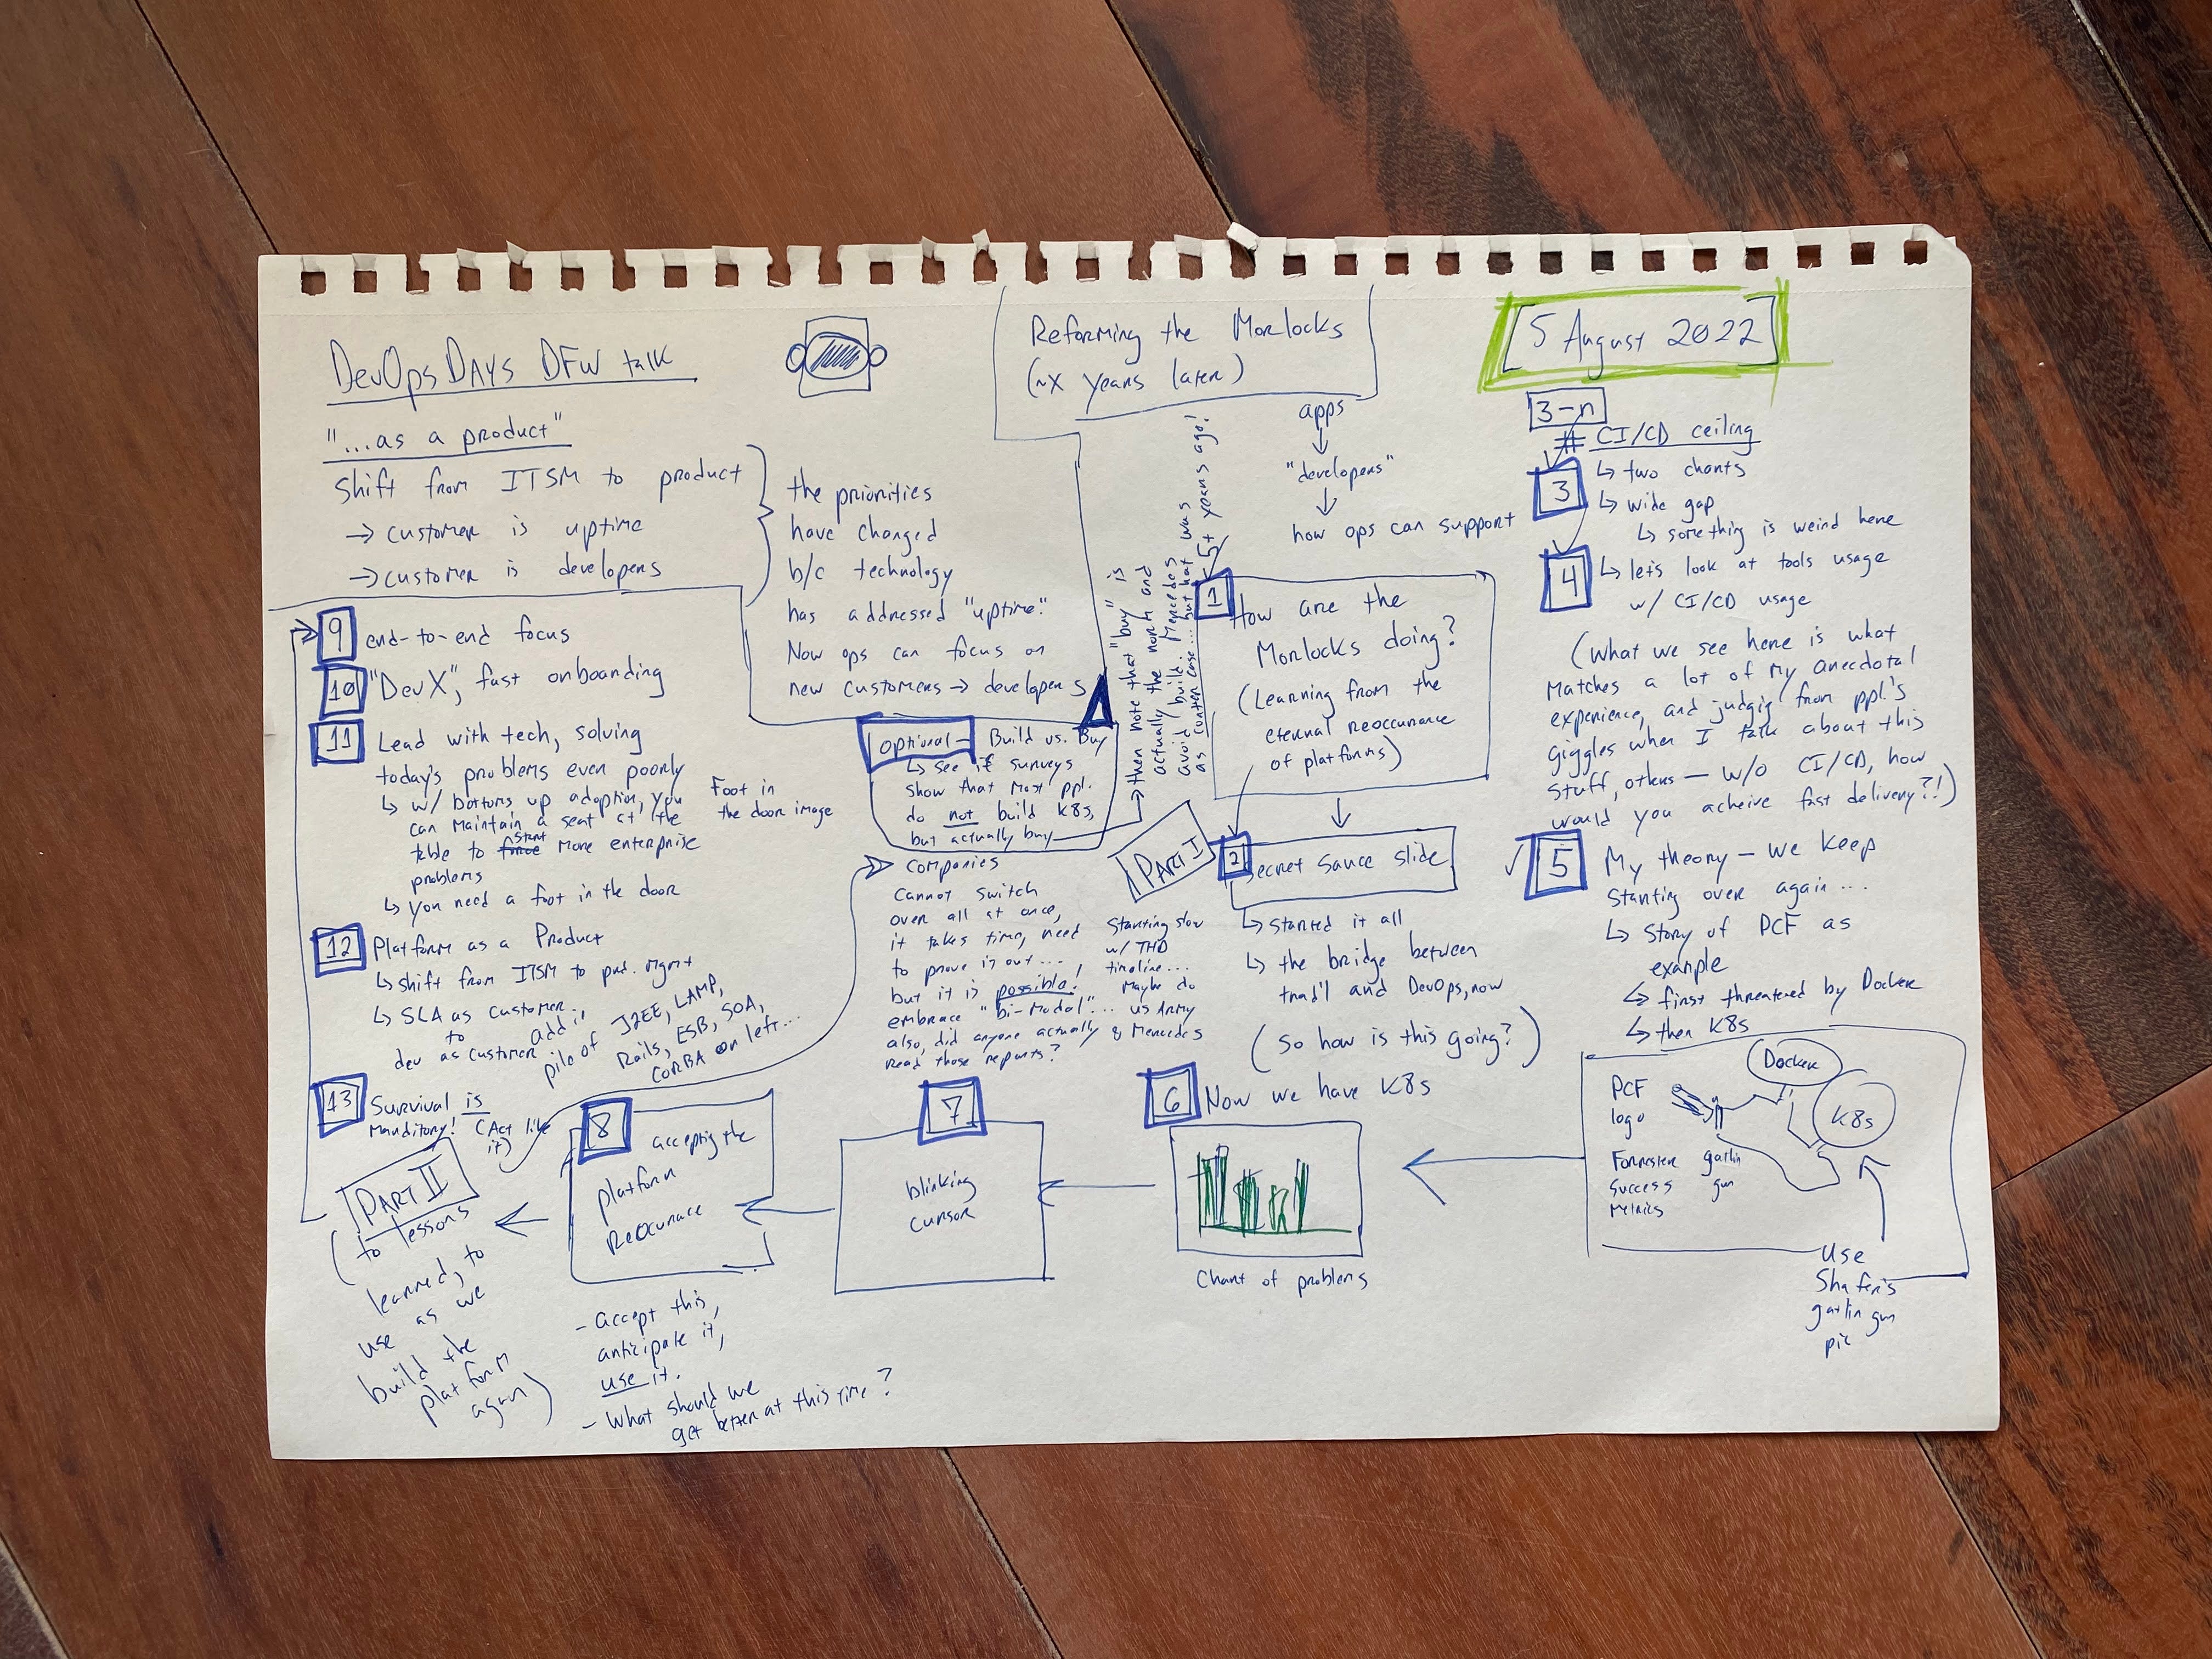 DevOpsDAYS DFW talk
"...as a product"
Shift from ITSM to product
→ customer is uptime
→ customer is developers
the priorities
have changed
b/c technology
has addressed "uptime."
Now ops can focus on
new customers → developers
Reforming the Morlocks
(~X years later)
[5 August 2022]
apps
↓
"developers"
↓
how ops can support
1
How are the
Morlocks doing?
(Learning from the
eternal reoccurance
of platforms)
PART I
2
Secret Sauce slide
↳ started it all
↳ the bridge between
trad'l and DevOps, now
(So how is this going?)
3-n
# CI/CD ceiling
3
↳ two charts
↳ wide gap
↳ something is weird here
4
↳ let's look at tools usage
w/ CI/CD usage
(What we see here is what
matches a lot of my anecdotal
experience, and judgig from ppl.'s
giggles when I talk about this
stuff, others — w/o CI/CD, how
would you acheive fast delivery?!)
5
My theory — we keep
starting over again...
↳ Story of PCF as
example
↳ first threatened by Docker
↳ then K8s
PCF
logo
Forrester
Success
Metrics
gatlin
gun
Docker
K8s
use
Shafer's
gatlin gun
pic
6
Now we have K8s
Chart of problems
7
blinking
cursor
8
acceptig the
platform
Reocurnace
- accept this,
anticipate it,
use it.
- What should we
get better at this time?
PART II
(to lessons
learned, to
use as we
build the
platform
again)
9
end-to-end focus
10
"DevX", fast onboarding
11
Lead with tech, solving
today's problems even poorly
↳ w/ bottoms up adoption, you
can maintain a seat at the
table to force start more enterprise
problems
↳ you need a foot in the door
Foot in
the door image
12
Platform as a Product
↳ shift from ITSM to prd. mgmt
↳ SLA as customer
to
dev as customer
add in
pile of J2EE, LAMP,
Rails, ESB, SOA,
CORBA on left...
13
Survival is
Manditory! (Act like
it)
optional —
Build vs. Buy
↳ see if surveys
show that most ppl.
do not build K8s,
but actually buy
→ then note that "buy" is
actually the norm and
avoid build... Mercedes
as counter case... but that was
5+ years ago!
Companies
cannot switch
over all at once,
it takes time, need
to prove it out...
but it is possible!
embrace "bi-modal"...
also, did anyone actually
read those reports?
Starting slow
w/ THD
timeline...
Maybe do
US Army
& Mercedes